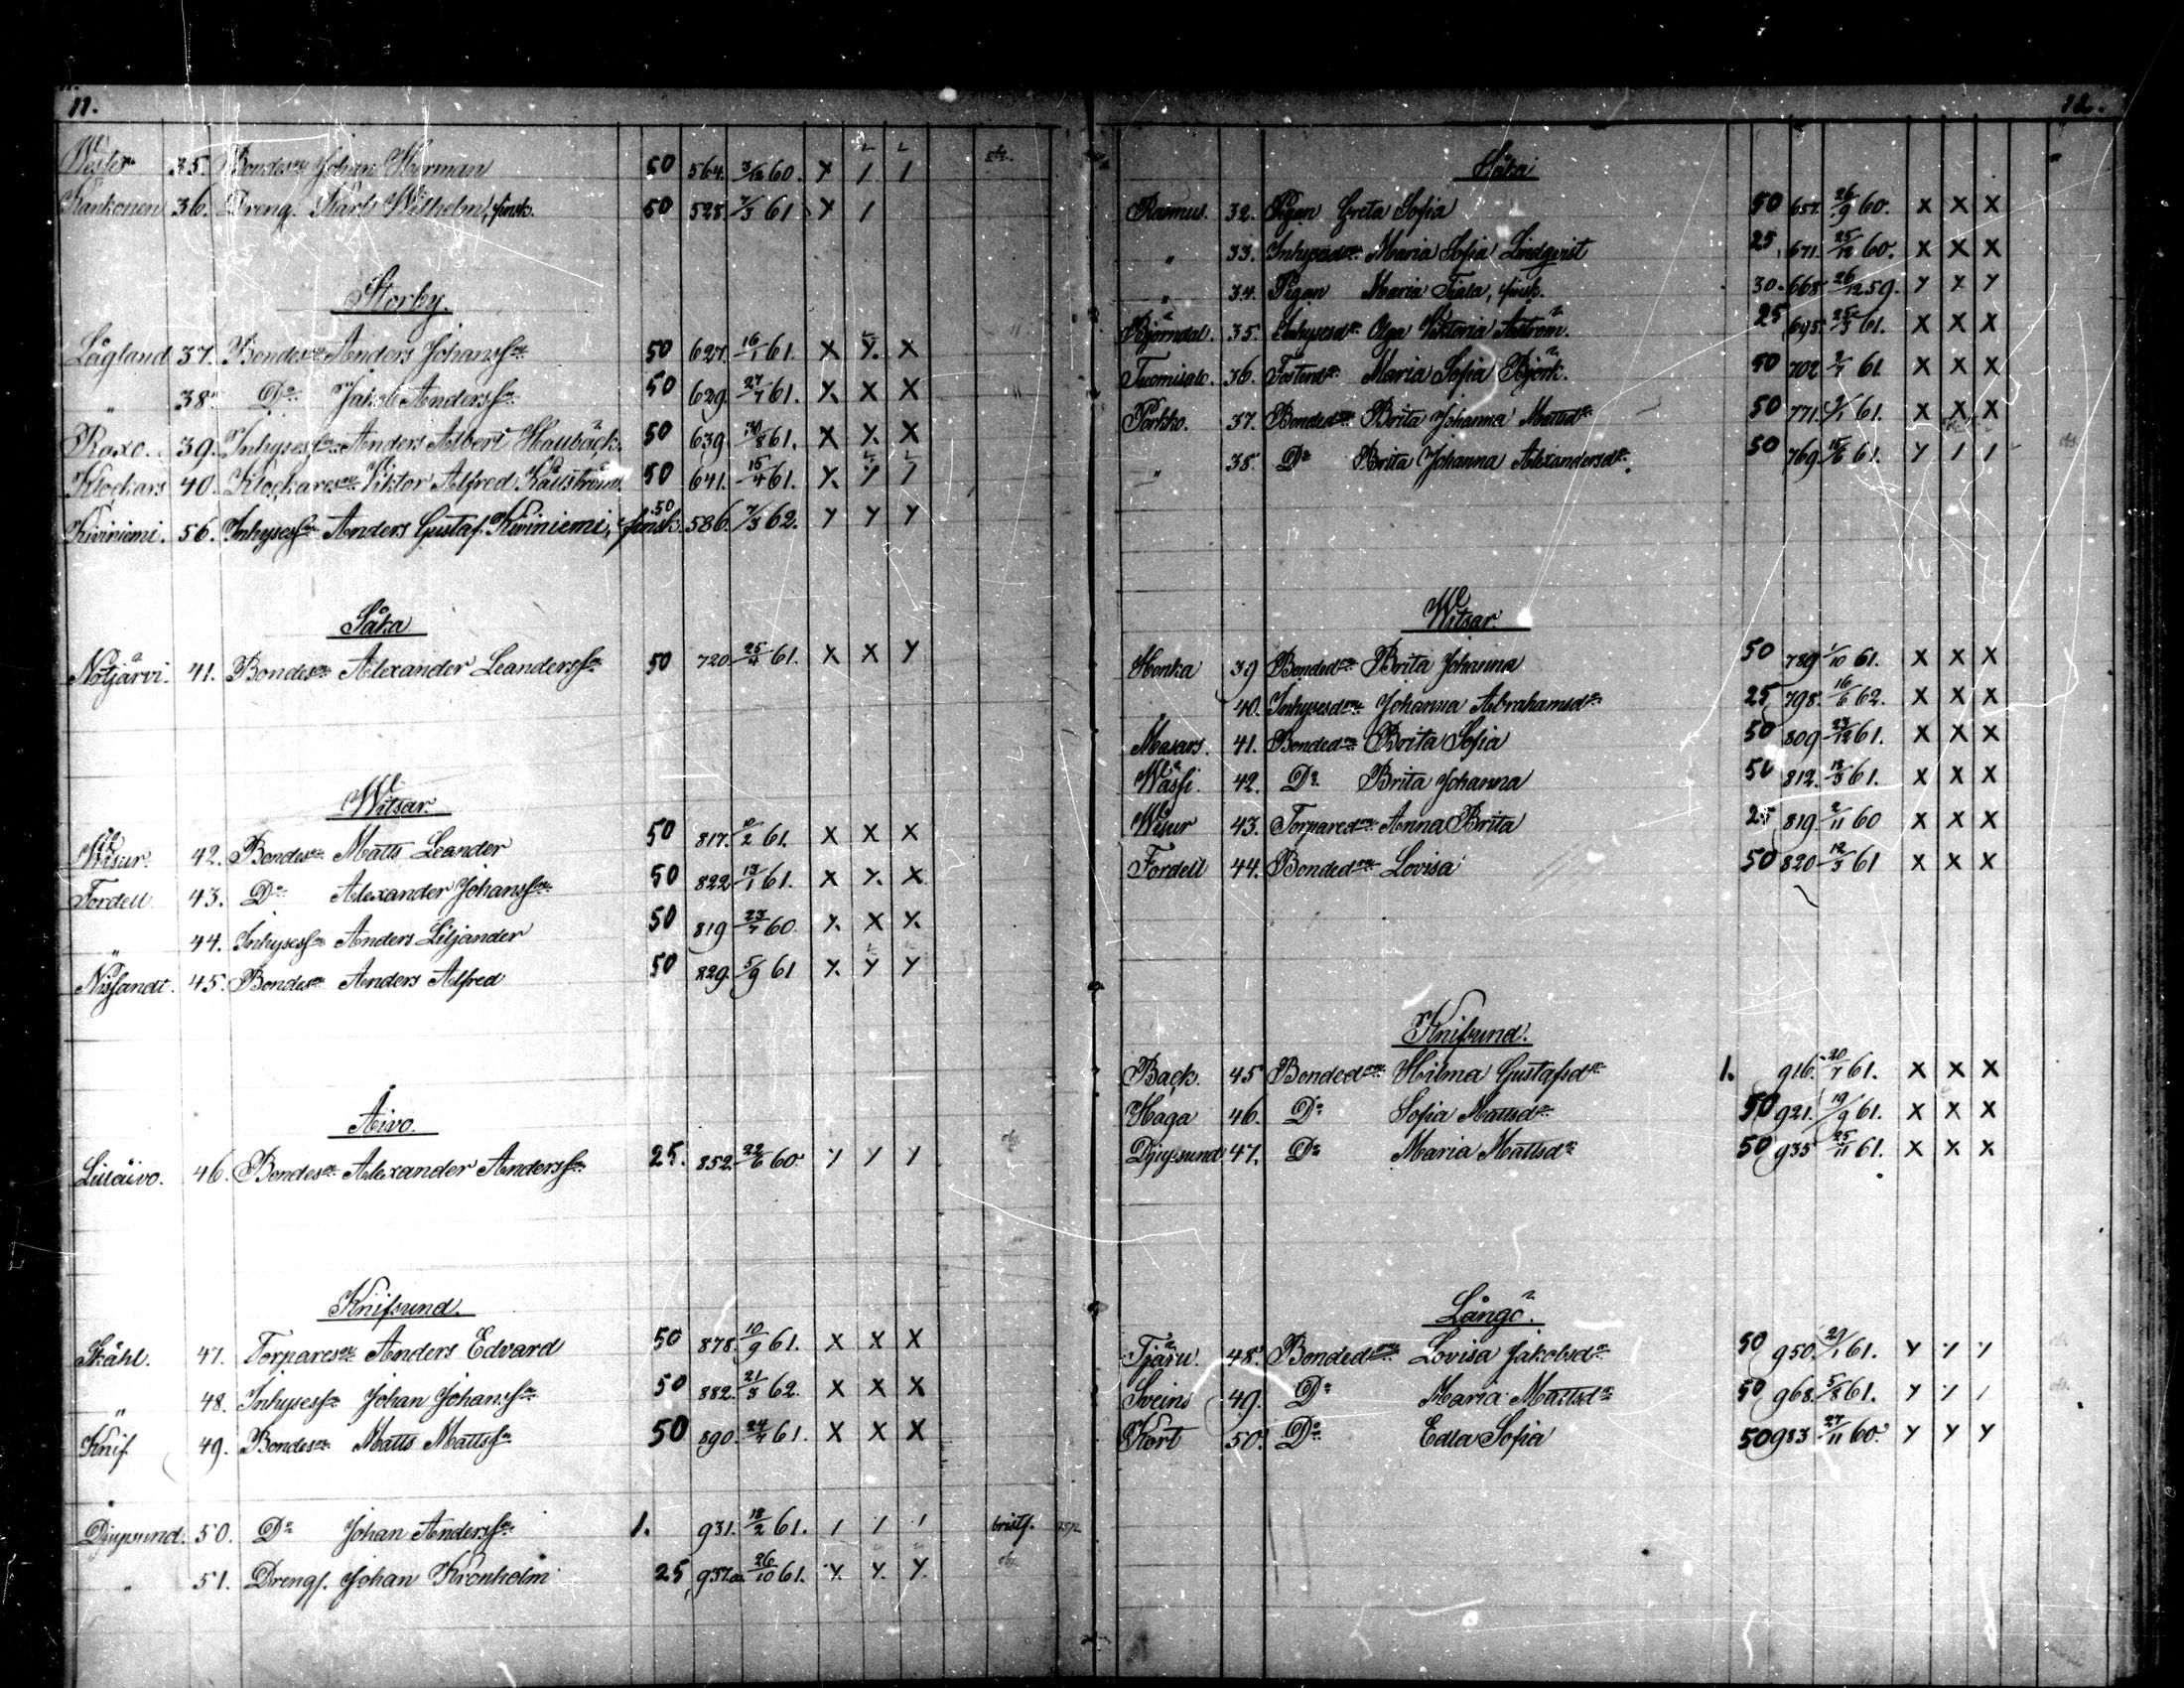 11.
Wester 35. Bondeson Johan Herman 50 564. 3/12 60. Y 1 1
Kankonen 36. Dreng. Karl Wilhelm, finsk. 50 528. 7/3 61 Y 1
Storby.
Lågland 37. Bondeson Anders Johansson 50 627. 16/1 61. X Y. X
„ 38. Do Jakob Andersson 50 629. 27/7 61. Y. X X
Raxo. 39. Inhysesson Anders Albert Haubäck. 50 639. 30/8 61. X Y. X
Klockars 40. Klockareson Viktor Alfred Källström. 50 641. 15/4 61. Y.
Kiviniemi. 56. Inhysesson Anders Gustaf Kiviniemi, finsk. 50 586. 7/3 62. Y Y Y
Såka
Nötjärvi. 41. Bondeson Alexander Leandersson 50 720. 25/4 61. X X Y
Witsar.
Wisur. 42. Bondeson Matts Leander 50 817. 2 61. X X X
Fordell 43. Do Alexander Johansson 50 822 13/1 61. X Y. X
„ 44. Inhysesson Anders Liljander 50 819 23/7 60. Y. X X
Nissandt. 45. Bondeson Anders Alfred 50 829. 5/9 61 Y. Y Y
Åivo.
Lillåivo. 46. Bondeson Alexander Andersson 25. 852. 22/6 60. Y Y Y
Knifsund.
Ståhl. 47. Torpareson Anders Edvard 50 878. 10/9 61. X X X
„ 48. Inhysesson Johan Johansson 50 882. 21/8 62. X X X
Knif 49. Bondeson Matts Mattsson 50 890. 24/7 61. X X X
Djupsund. 50. Do Johan Andersson 1. 931. 18/2 61. 1 1 1 bristf.
„ 51. Drengf. Johan Kronholm 25 937. 26/10 61. Y. Y. Y.
12.
Såka
Rasmus. 32. Pigan Greta Sofia 50 657. 26/9 60. X X X
„ 33. Inhysesdotr Maria Sofia Lindqvist 25 671. 25/12 60. X X X
„ 34. Pigan Maria Tiala, finsk. 30. 668 26/12 59. Y Y Y
Björndal. 35. Inhysesdr Olga Viktoria Åström. 25 695. 25/3 61. X X X
Tuomisalo. 36. Fosterdr Maria Sofia Björk. 50 702 61. X X X
Porkko. 37. Bondedr Brita Johanna Mattsdr 50 771. 61. X X X
„ 38. Do Brita Johanna Alexandersdr. 50 769. 15/6 61. Y 1 1
Witsar.
Honka 39 Bondedr Brita Johanna 50 789 1/10 61. X X X
40. Inhysesdr Johanna Abrahamsdr 25 798. 16/6 62. X X X
Masars. 41. Bondedr Brita Sofia 50 809 23/12 61. X X X
Wassi. 42. Do Brita Johanna 50 812. 18/3 61. X X X
Wisur 43. Torparedr Anna Brita 25 819. 2/11 60 X X X
Fordell 44. Bondedr Lovisa 50 820 12/3 61 X X X
Knifsund.
Back. 45 Bondedr Hilma Gustafsdr 1. 916. 20/7 61. X X X
Haga 46. Do Sofia Mattsdr 50 921. 19/9 61. X X X
Djupsund 47. Do Maria Mattsdr 50 935 25/11 61. X X X
Långö.
Tjäru. 48. Bondedr Lovisa Jakobsdr 50 950. 29/1 61. Y Y Y
Sveins 49. Do Maria Mattsdr 50 968. 5/8 61. Y Y 1
Kort 50. Do Edla Sofia 50 983 27/11 60. Y Y Y